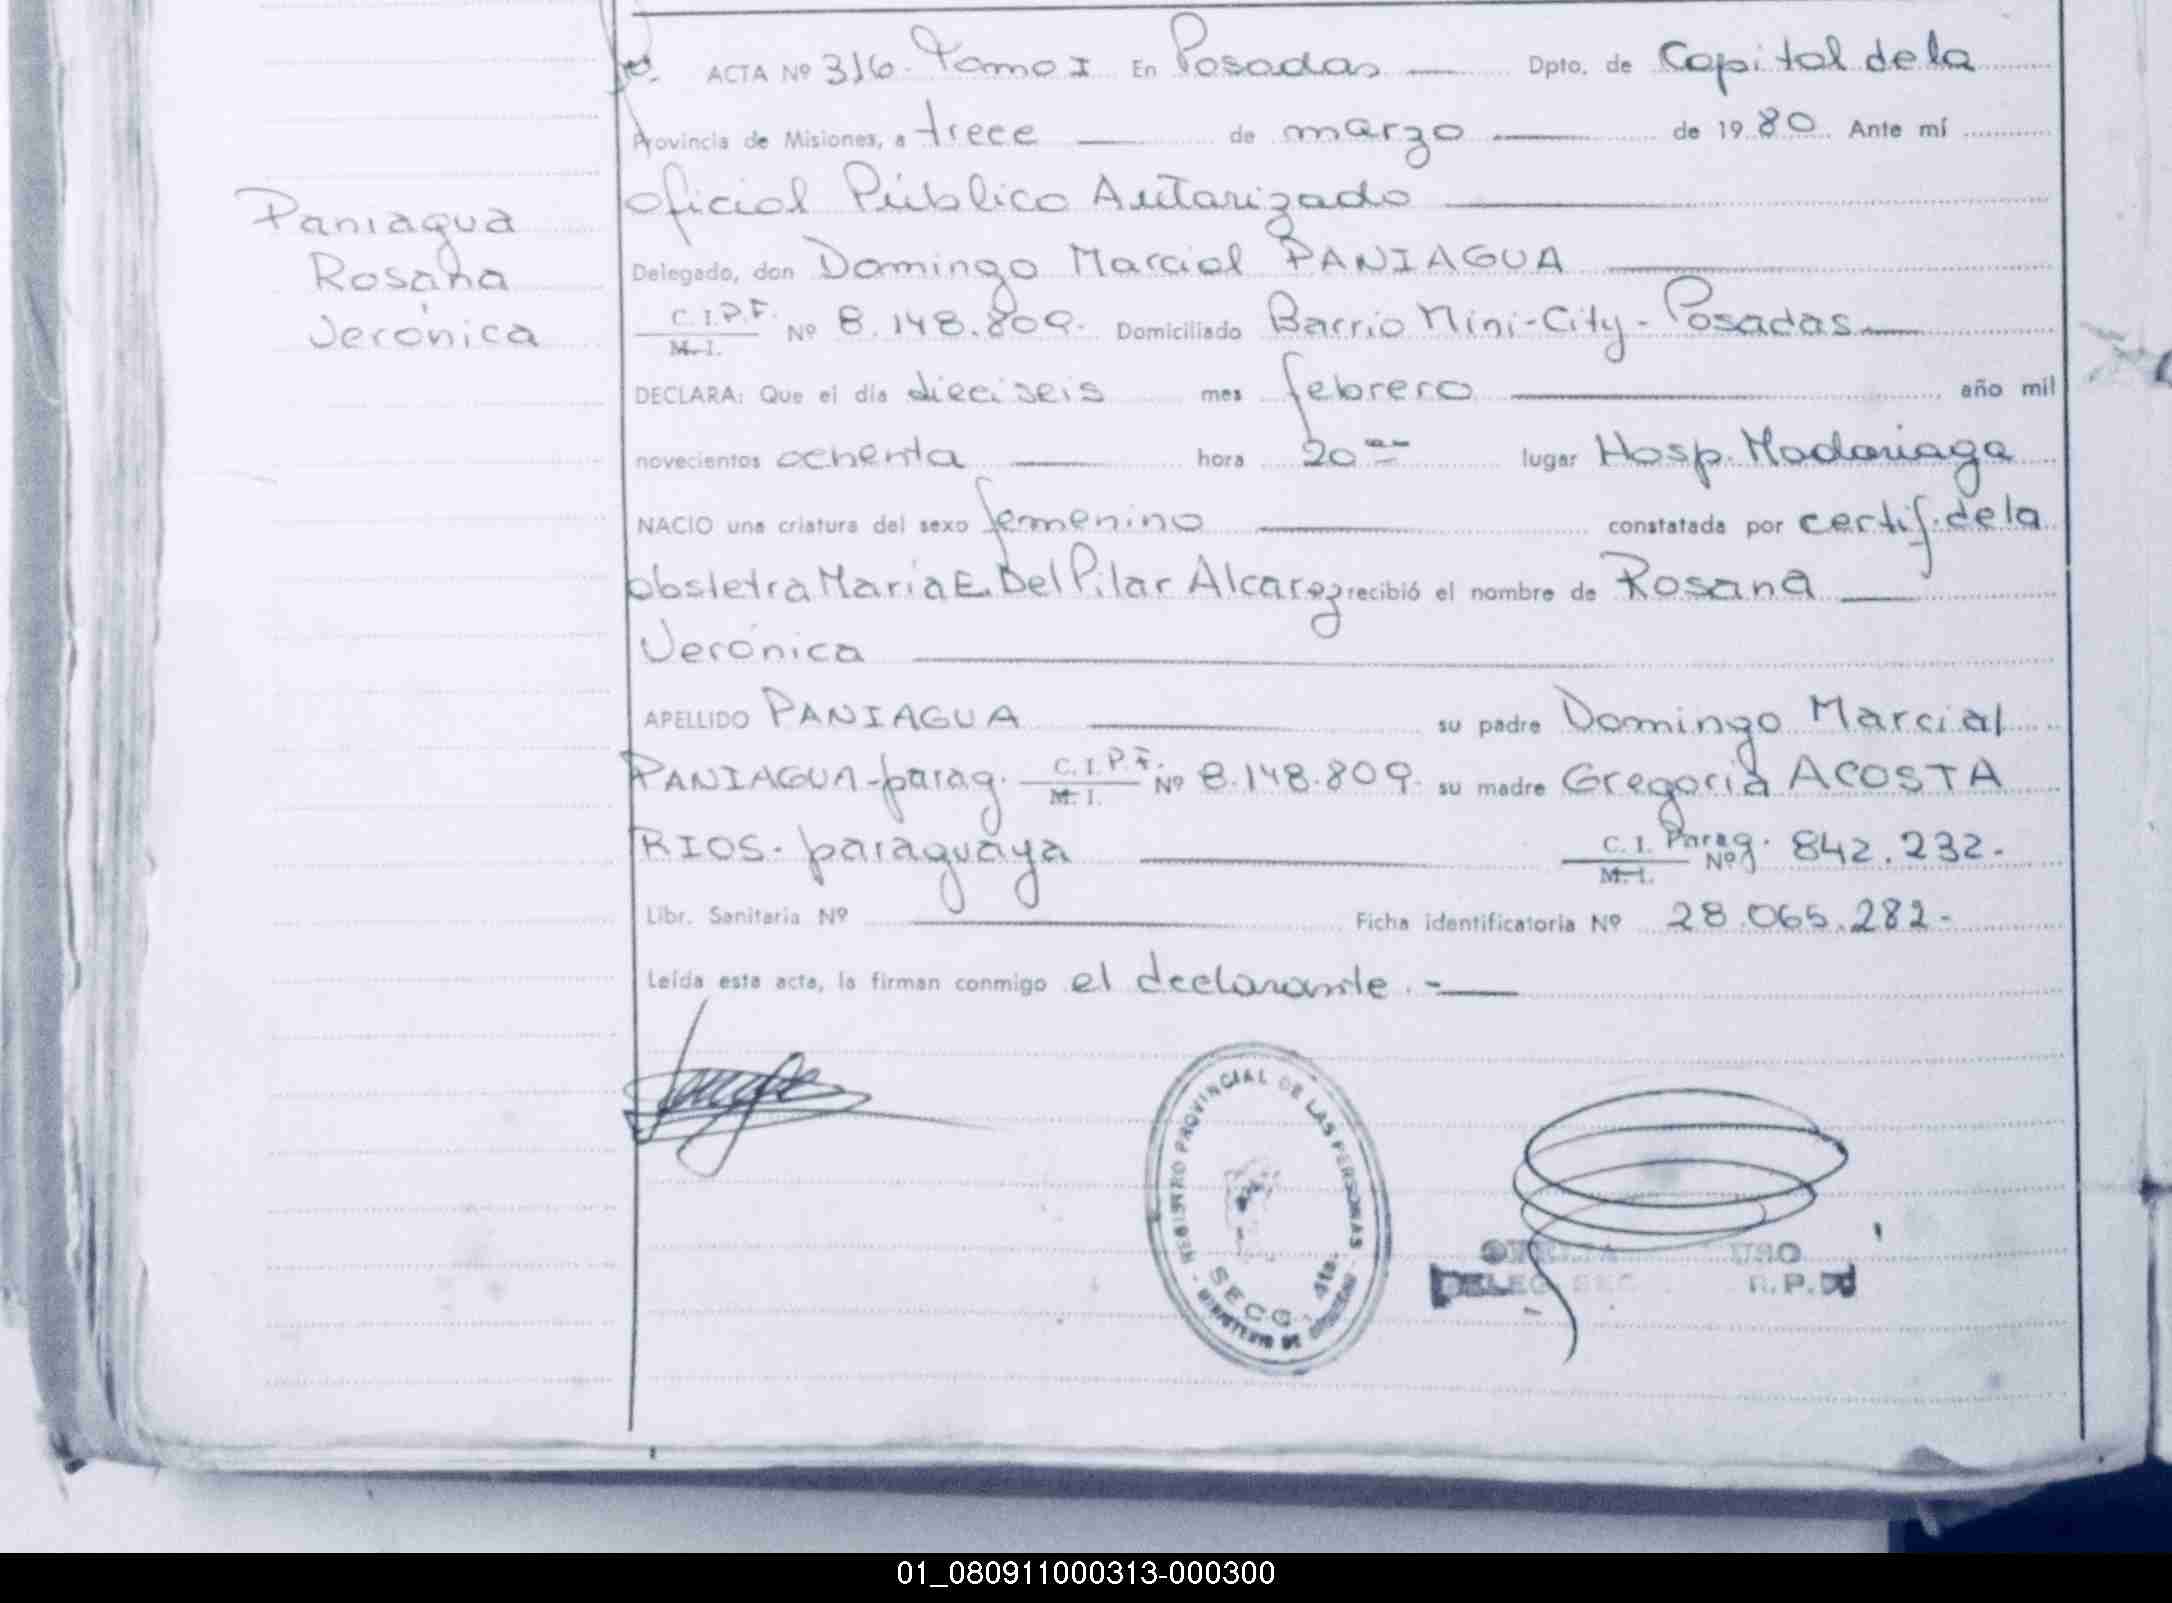 Paniagua
Rosana
Verónica
ACTA Nº 316. Tomo I En Posadas Dpto. de Capital de la
Provincia de Misiones, a trece de marzo de 1980 Ante mí
Oficial Público Autorizado
Delegado, don Domingo Marcial PANIAGUA
C.I.P.F. M.I. Nº 8.148.809. Domiciliado Barrio Mini-City-Posadas
DECLARA: Que el día dieciseis mes febrero año mil
novecientos ochenta hora 20 lugar Hosp. Madariaga
NACIO una criatura del sexo femenino constatada por certif. de la
obstetra María E. Del Pilar Alcarez recibió el nombre de Rosana
Verónica
APELLIDO PANIAGUA su padre Domingo Marcial
PANIAGUA-parag. C.I.P.F. M.I. Nº 8.148.809. su madre Gregoria ACOSTA
RIOS. paraguaya C.I. Parag. M.I. Nº 842.232.
Libr. Sanitaria Nº Ficha identificatoria Nº 28.065.282-
Leída esta acta, la firman conmigo el declarante.-
REGISTRO PROVINCIAL DE LAS PERSONAS
SECC. 4ta.
MINISTERIO DE GOBIERNO
DELEG. SEC R.P.
01_080911000313-000300